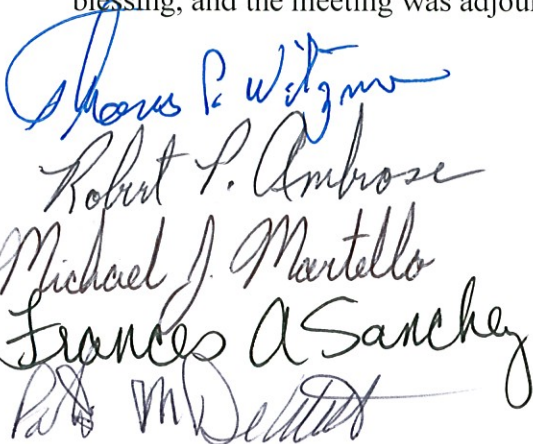 blessing, and the meeting was adjour
Thomas P. Witzman
Robert P. Ambrose
Michael J. Martello
Frances A Sanchez
M